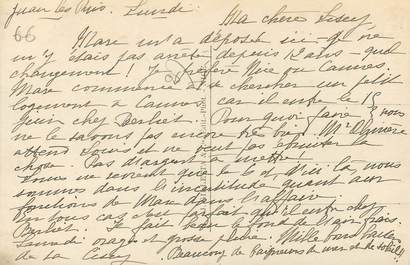 Juan les Pins. Lundi.
66 Ma chère Lissy
Marc m'a déposé ici - je ne
m'y étais pas arrêtée depuis 2 ans - quel
changement ! Je préfère Nice ou Cannes.
Marc commence à se chercher un petit
logement à Cannes car il entre le 15
juin chez Berliet. Pour quoi faire ? nous
ne le savons pas encore très bien. Mr
attend Louis et ne veut pas
chose. Pas d'argent à mettre.
ne revient que le 6, d'ici là, nous
sommes dans l'incertitude quant aux
fonctions de Marc dans l'affaire.
En tous cas c'est parfait qu'il entre chez
Berliet. Il fait beau le fond de l'air frais.
Lundi orages et grosse pluie. Mille bons baisers
de ta
Beaucoup de baigneurs de mer et de soleil